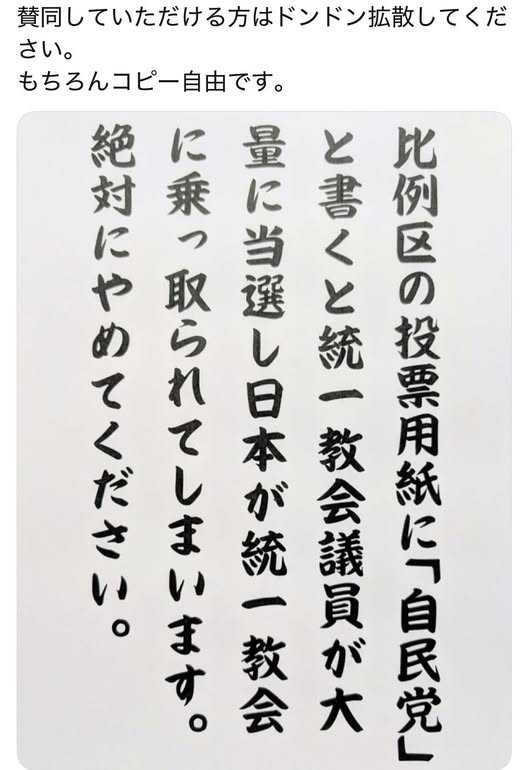 賛同していただける方はドンドン拡散してくだ
さい。
もちろんコピー自由です。
比例区の投票用紙に「自民党」
と書くと統一教会議員が大
量に当選し日本が統一教会
に乗っ取られてしまいます。
絶対にやめてください。